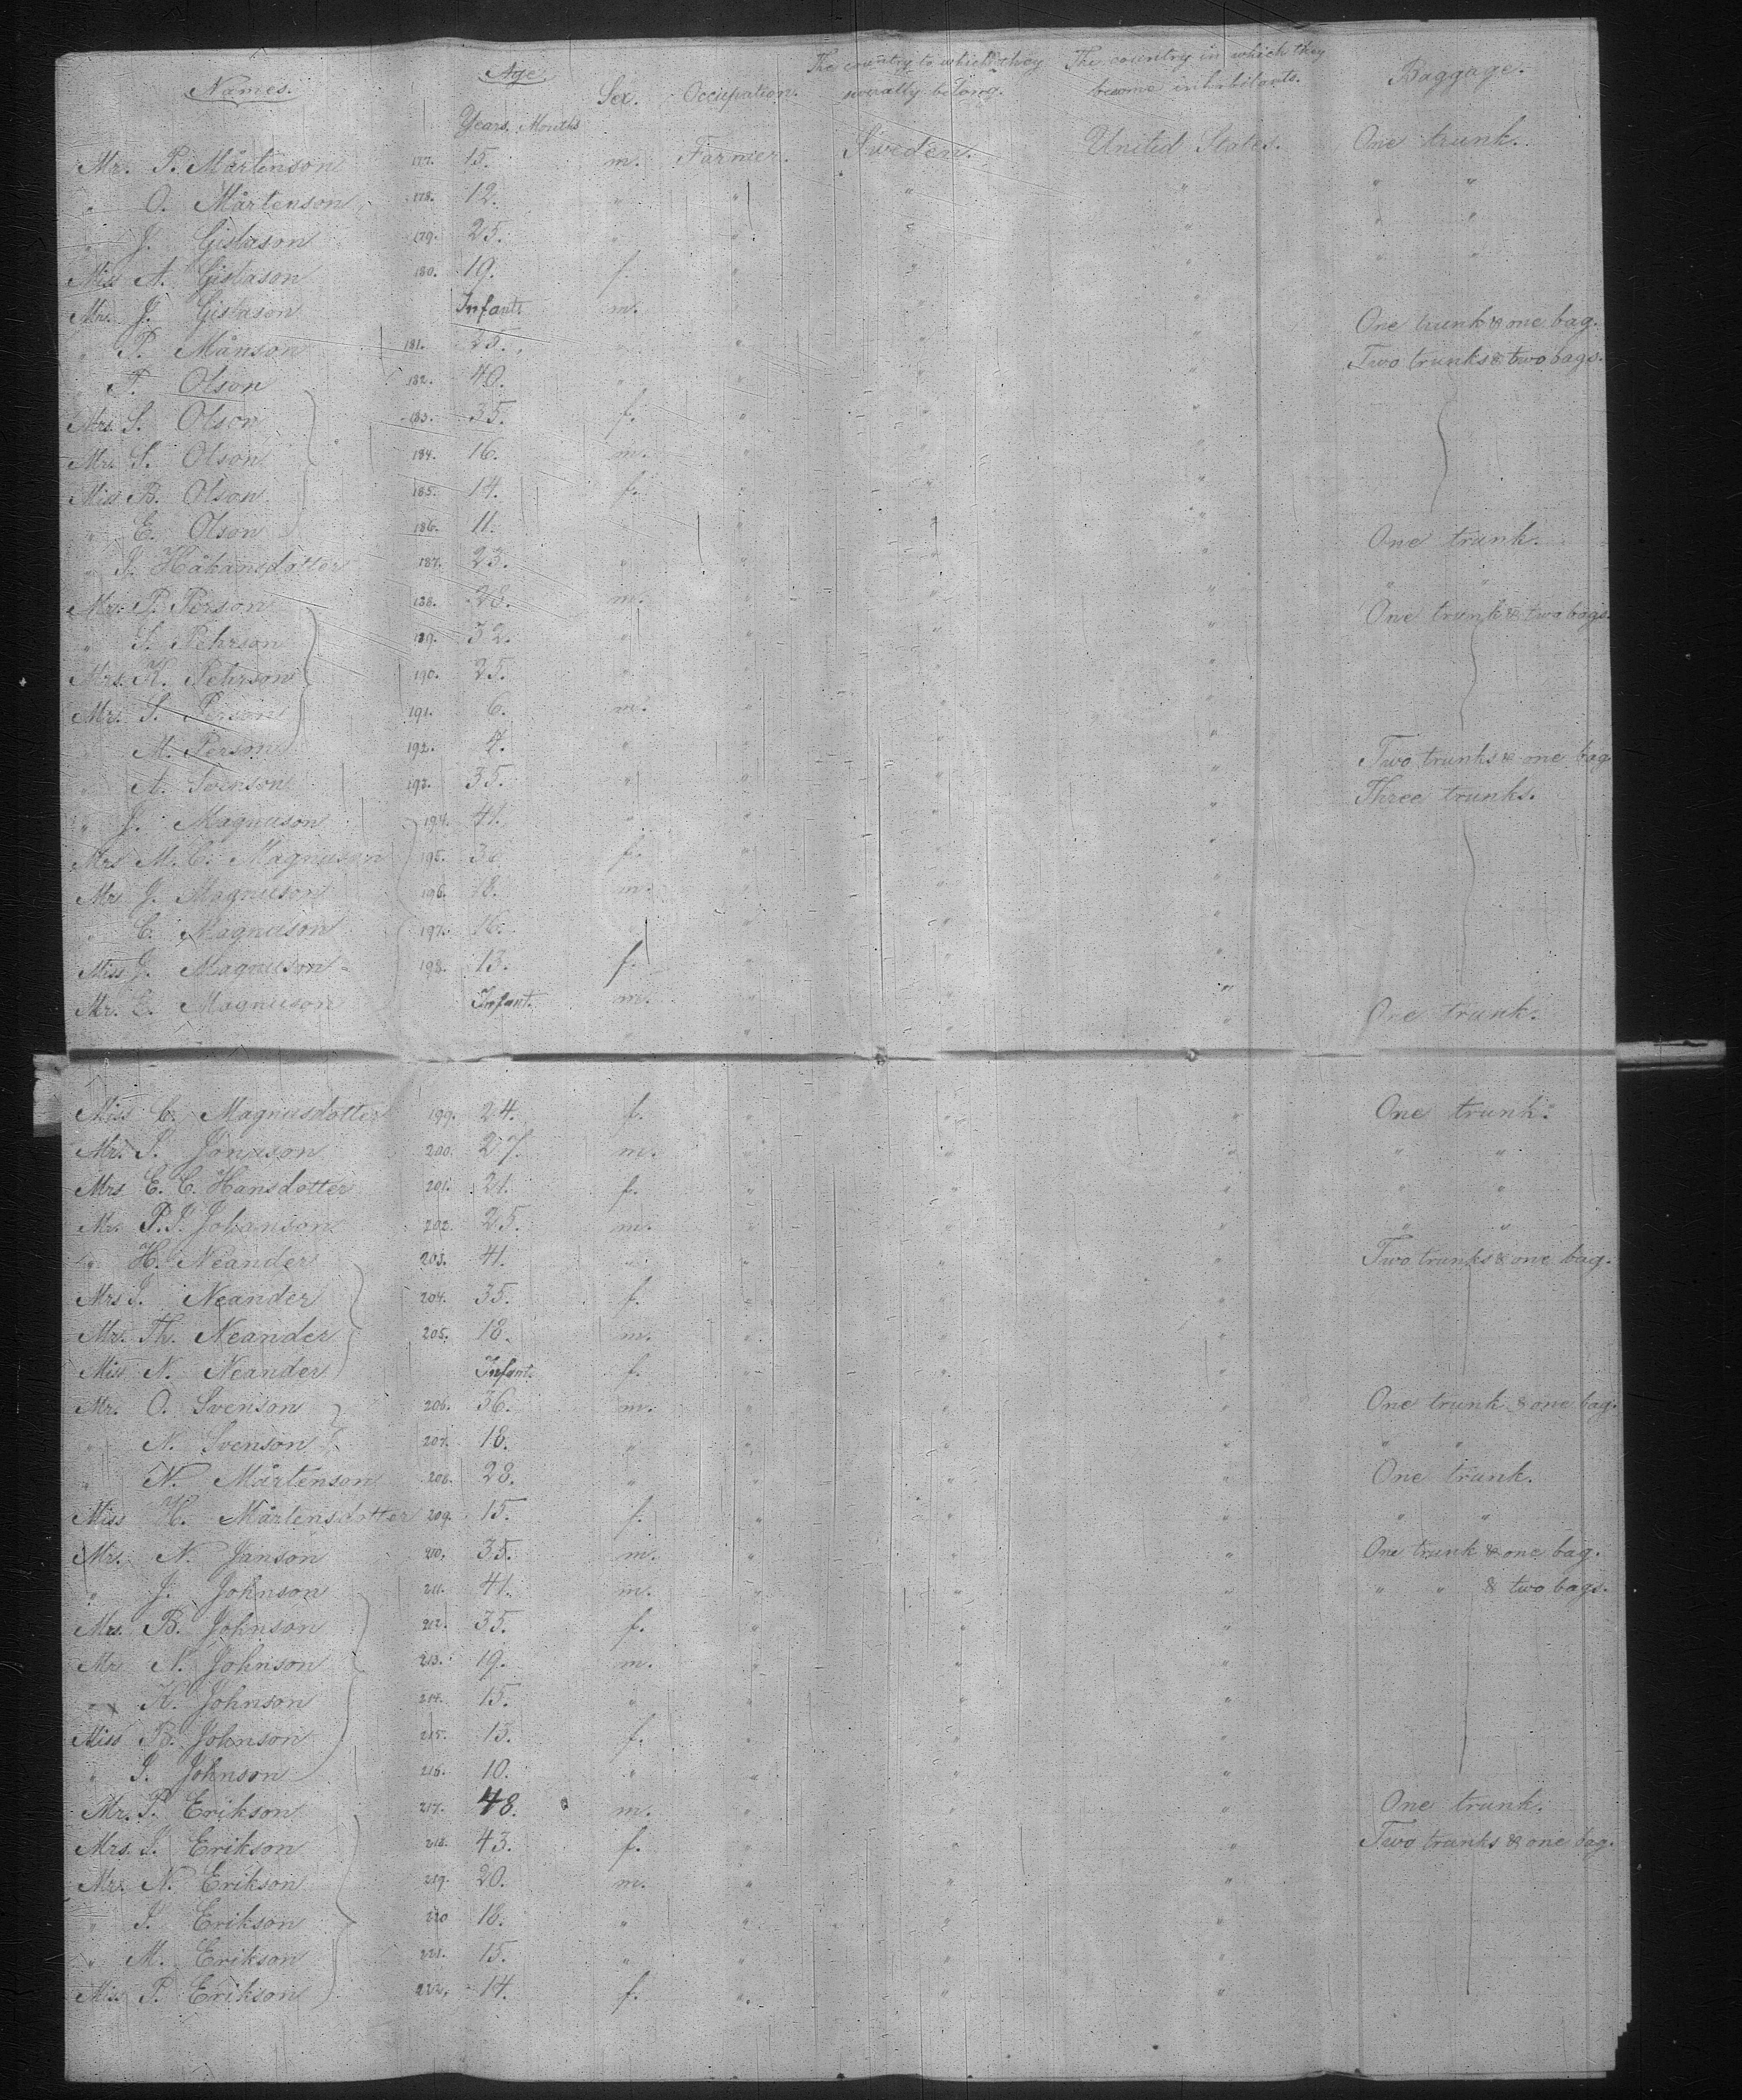 Names. Age. Sex. Occupation. The country to which they severally belong. The country in which they become inhabitants. Baggage.
Years. Months
Mr. P. Mårtenson 177. 15. m. Farmer. Sweden. United States. One trunk.
" O. Mårtenson 178. 12. " " " " " "
" J. Gislason 179. 25. " " " " " "
Miss A. Gislason 180. 19. f. " " " " "
Mr. J. Gislason Infant m. " " "
" P. Månson 181. 25. " " " " One trunk & one bag.
P. Olson 182. 40. " " " " Two trunks & two bags.
Mrs. S. Olson 183. 35. f. " " "
Mr. S. Olson 184. 16. m. " " "
Miss B. Olson 185. 14. f. " " "
" E. Olson 186. 11. " " " "
" I. Håkansdotter 187. 23. " " " " One trunk.
Mr. P. Person 188. 28. m. " " " " "
" S. Pehrson 189. 32. " " " " One trunk & two bags.
Mrs. K. Pehrson 190. 25. " " " "
Mr. S. Person 191. 6. m. " " "
M. Person 192. 4. " " " "
" A. Svenson 193. 35. " " " " Two trunks & one bag
" J. Magnuson 194. 41. " " " " Three trunks.
Mrs M. C. Magnuson 195. f. " " "
Mr. J. Magnuson 196. 18. m. " " "
" C. Magnuson 197. 16. " " "
Miss J. Magnuson 198. 13. f. " " "
Mr. E. Magnuson Infant. m. " " "
" " " " One trunk.
Miss C. Magnusdotter 199. 24. f. " " " One trunk.
Mr. S. Jonason 200. 27. m. " " " " "
Mrs E. C. Hansdotter 201. 21. f. " " " " "
Mr. P. J. Johanson 202. 25. m. " " " " "
" H. Neander 203. 41. " " " " Two trunks & one bag.
Mrs J. Neander 204. 35. f. " " "
Mr. Th. Neander 205. 18. m. " " "
Miss N. Neander Infant. f. " " "
Mr. O. Svenson 206. 36. m. " " " One trunk & one bag.
" N. Svenson 207. 18. " " " " " "
" N. Mårtenson 208. 28. " " " " One trunk.
Miss H. Mårtensdotter 209. 15. f. " " " " "
Mr. N. Janson 210. 35. m. " " " One trunk & one bag.
" J. Johnson 211. 41. m. " " " " " & two bags.
Mrs. B. Johnson 212. 35. f. " " "
Mr N. Johnson 213. 19. m. " " "
" K. Johnson 214. 15. " " " "
Miss B. Johnson 215. 13. f. " " "
" I. Johnson 216. 10. " " " "
Mr. P. Erikson 217. 48. m. " " " One trunk.
Mrs. I. Erikson 218. 43. f. " " " Two trunks & one bag.
Mr. N. Erikson 219. 20. m. " " "
" I. Erikson 220 18. " " " "
" M. Erikson 221. 15. " " " "
Miss P. Erikson 222. 14. f. " " "